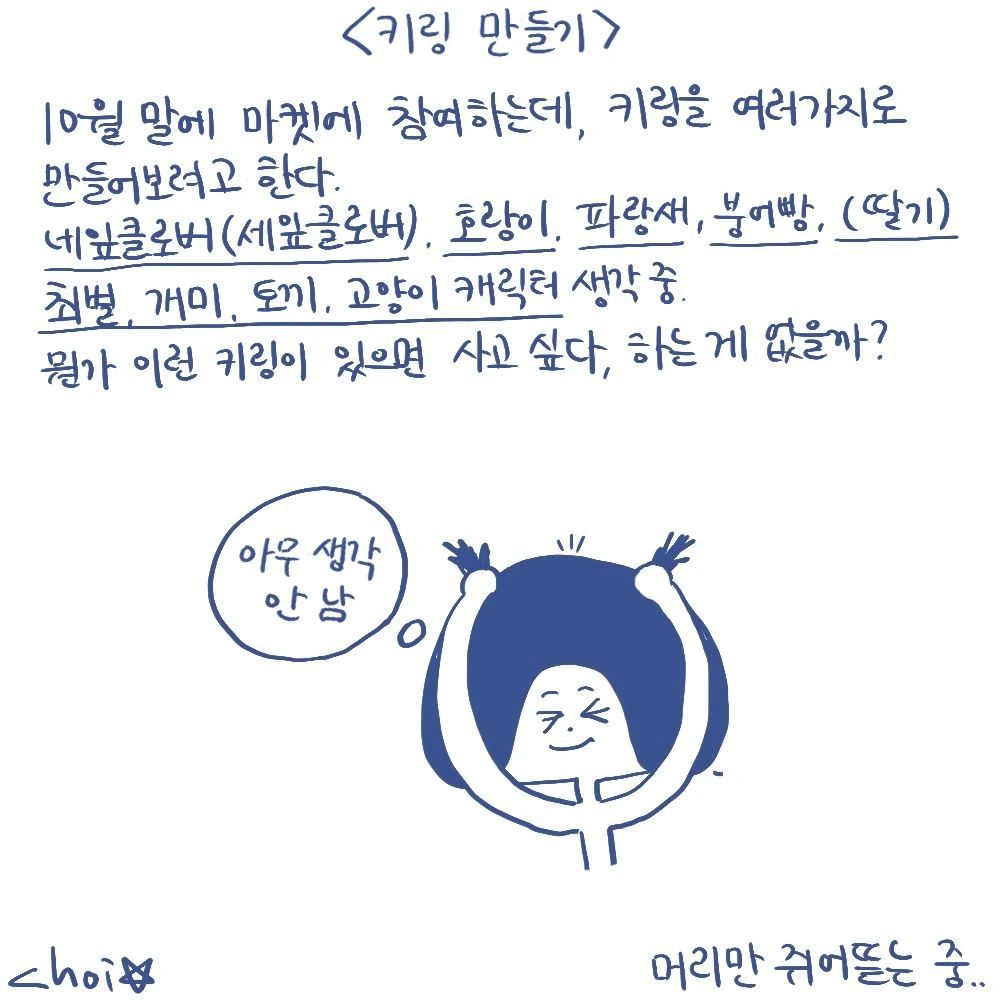 <키링 만들기>
10월 말에 마켓에 참여하는데, 키링을 여러가지로
만들어보려고 한다.
네잎클로버(세잎클로버), 호랑이, 파랑새, 붕어빵, (딸기)
최별, 개미, 토끼, 고양이 캐릭터 생각 중.
뭔가 이런 키링이 있으면 사고 싶다, 하는 게 없을까?
아무 생각
안 남
choi
머리만 쥐어뜯는 중..